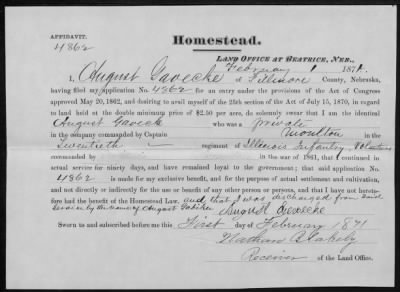 AFFIDAVIT.
4862
Homestead.
LAND OFFICE AT BEATRICE, NEB.,
February 1 1871.
I, August Gavecke of Fillmore County, Nebraska,
having filed my application No. 4862 for an entry under the provisions of the Act of Congress
approved May 20, 1862, and desiring to avail myself of the 25th section of the Act of July 15, 1870, in regard to
land held at the double minimum price of $2.50 per acre, do solemnly swear that I am the identical
August Gaveck who was a private
in the company commanded by Captain Moulton in the
Twentieth regiment of Illinois Infantry Volunteers
commanded by in the war of 1861, that I continued in
actual service for ninety days, and have remained loyal to the government; that said application No.
4862 is made for my exclusive benefit, and for the purpose of actual settlement and cultivation,
and not directly or indirectly for the use or benefit of any other person or persons, and that I have not hereto-
fore had the benefit of the Homestead Law. and that I was discharged from said
service by the name of August
August Gevecke
Sworn to and subscribed before me this First day of February 1871
Nathan Blakely
Receiver of the Land Office.